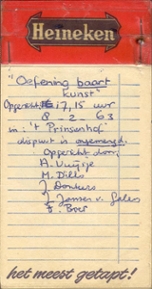 Heineken
"Oefening baart
kunst"
Opgericht: 17,15 uur
8 - 2 - 63
in: 't Prinsenhof
dispuut is ongemengd.
Opgericht door:
A. Vuijtje
M. Dills
J. Donkers
J. Jansen v. Galen
F. Boer
het meest getapt!